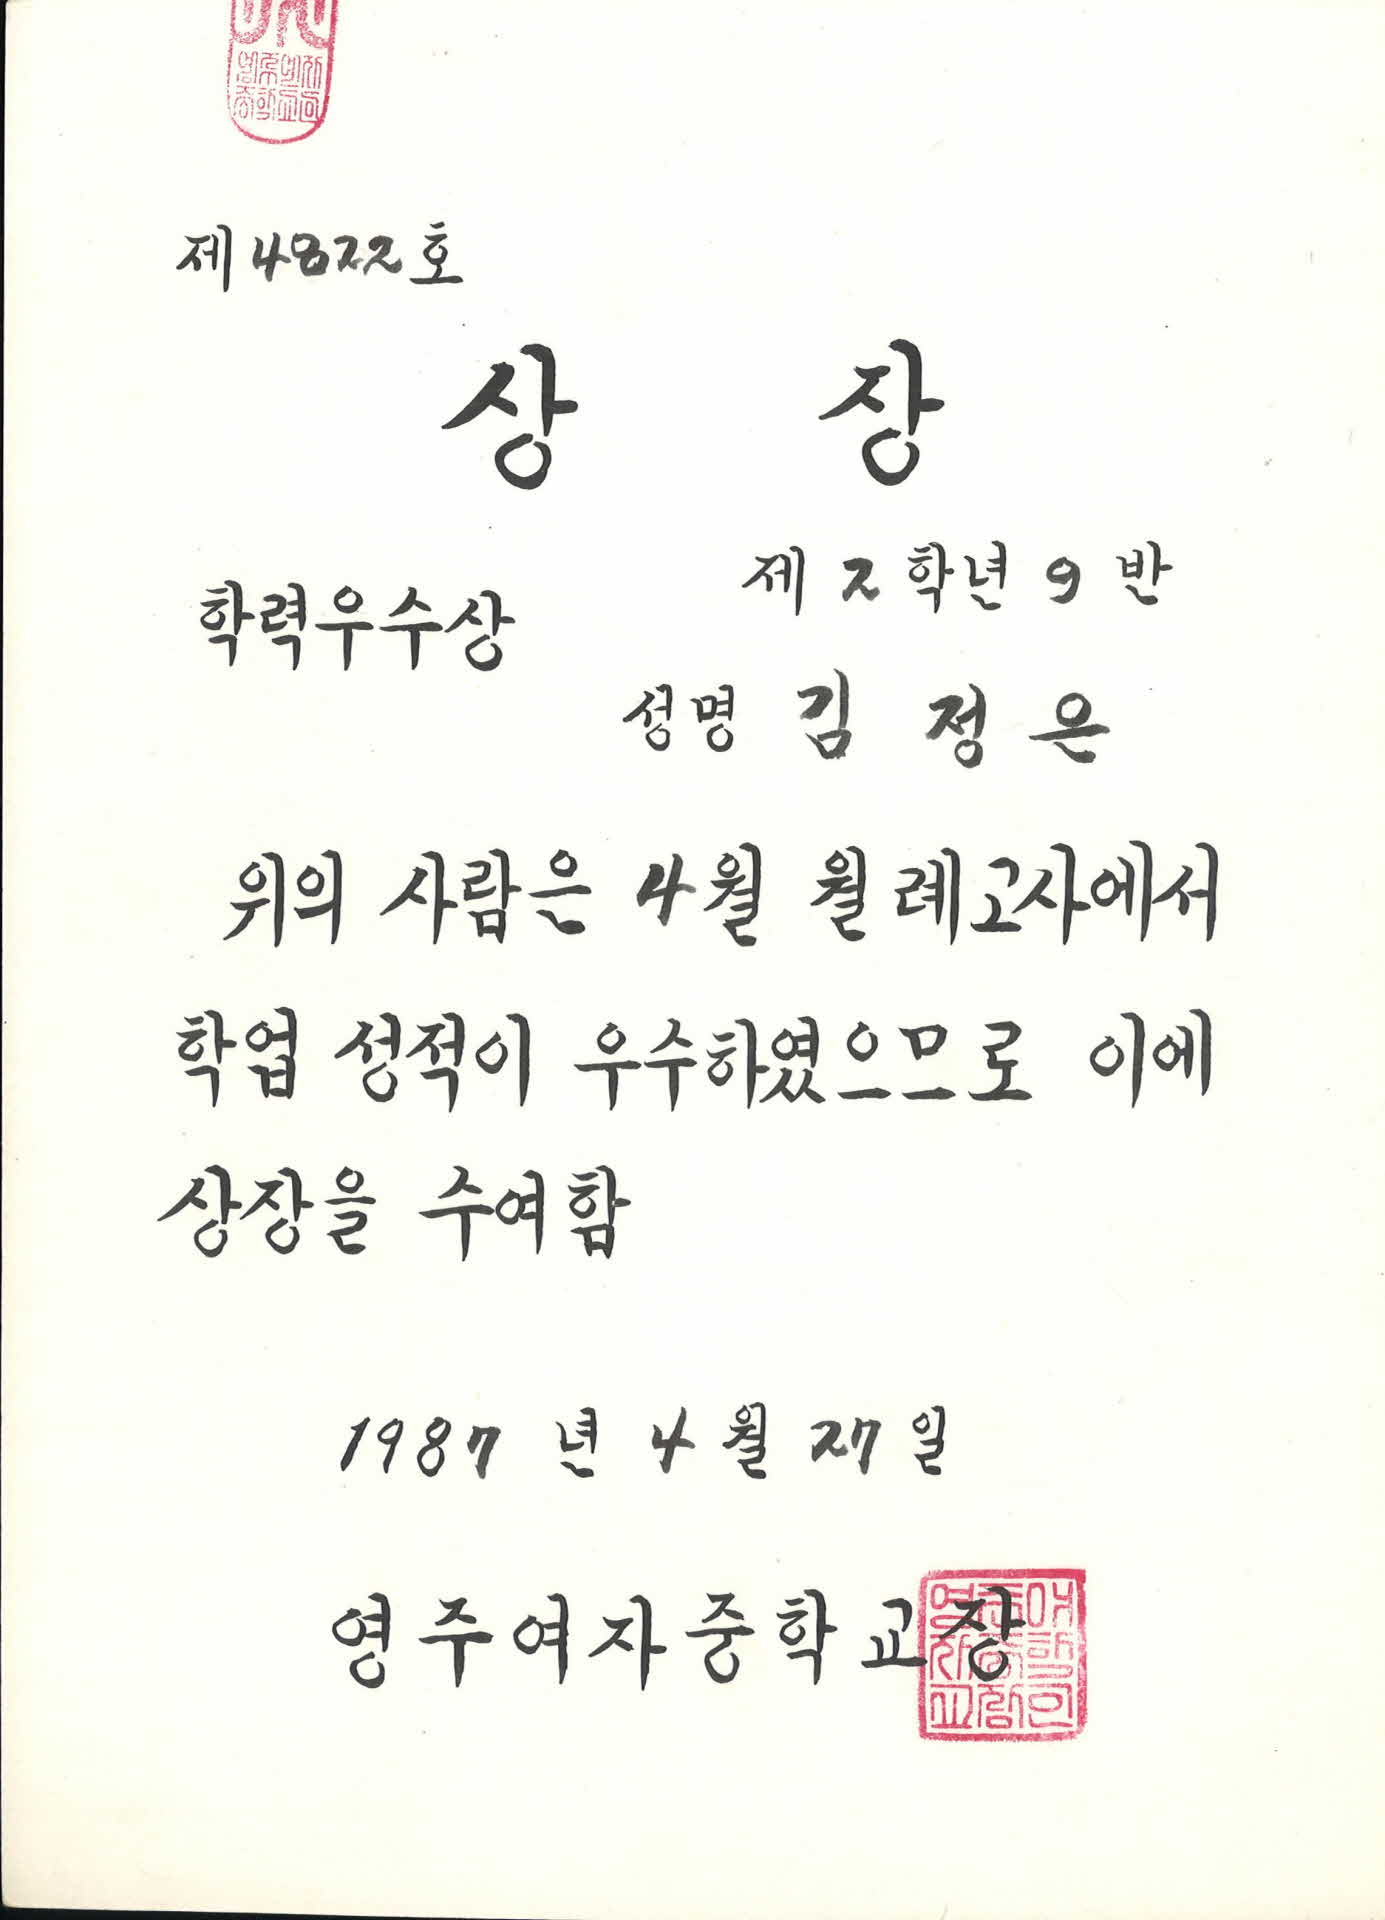 제 4822 호
상 장
제 2 학년 9 반
학력우수상
성명 김 정 은
위의 사람은 4월 월례고사에서
학업 성적이 우수하였으므로 이에
상장을 수여함
1987 년 4 월 27 일
영주여자중학교장